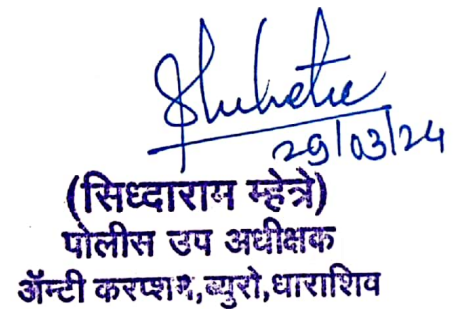 29/03/24
(सिध्दाराम म्हेत्रे)
पोलीस उप अधीक्षक
ॲन्टी करप्शन,ब्युरो,धाराशिव